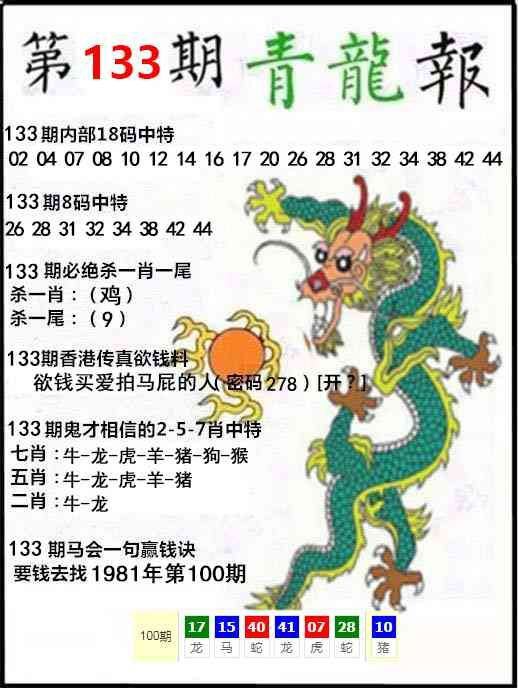 第133期青龍報
133期内部18码中特
02 04 07 08 10 12 14 16 17 20 26 28 31 32 34 38 42 44
133期8码中特
26 28 31 32 34 38 42 44
133期必绝杀一肖一尾
杀一肖：（鸡）
杀一尾：（9）
133期香港传真欲钱料
欲钱买爱拍马屁的人（密码278）[开？]
133期鬼才相信的2-5-7肖中特
七肖：牛-龙-虎-羊-猪-狗-猴
五肖：牛-龙-虎-羊-猪
二肖：牛-龙
133期马会一句赢钱诀
要钱去找1981年第100期
100期 17 15 40 41 07 28 10
龙 马 蛇 龙 虎 蛇 猪